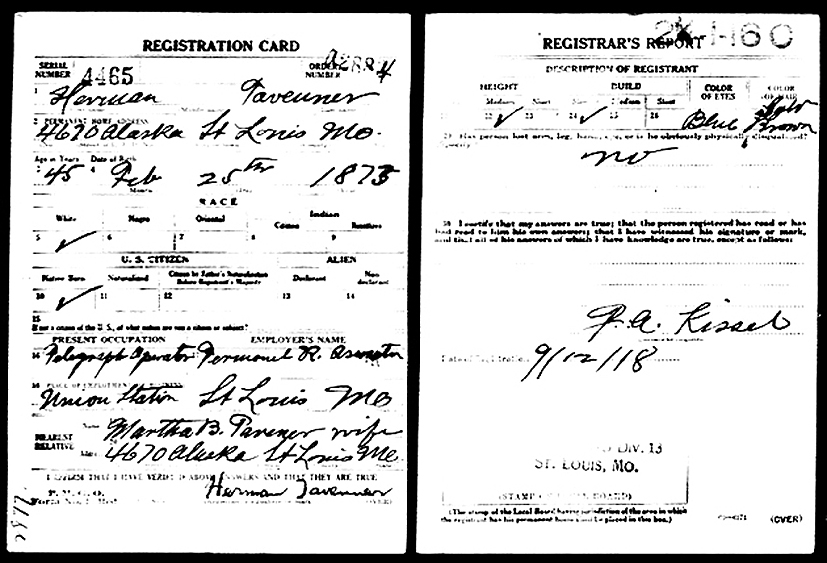 REGISTRATION CARD
SERIAL NUMBER 4465 ORDER NUMBER A2884
1 Herman Tavenner
2 PERMANENT HOME ADDRESS
4670 Alaska St Louis Mo.
Age in Years Date of Birth
45 4 Feb 25th 1873
RACE
White Negro Oriental Indian
Citizen
5 6 7 8 9
U. S. CITIZEN ALIEN
Native Born Naturalized Citizen by Father's Naturalization Before Registrant's Majority Declarant Non-declarant
10 11 12 13 14
15
If not a citizen of the U. S., of what nation are you a citizen or subject?
PRESENT OCCUPATION EMPLOYER'S NAME
16 Telegraph Operator Terminal R.
18 PLACE OF EMPLOYMENT
Union Station St Louis Mo
NEAREST RELATIVE
Name Martha B. Tavenner wife
4670 Alaska St Louis Mo.
I AFFIRM THAT I HAVE VERIFIED ABOVE ANSWERS AND THAT THEY ARE TRUE
P. M. G. O.
Herman Tavenner
(OVER)
REGISTRAR'S REPORT
2X-1-160
DESCRIPTION OF REGISTRANT
HEIGHT BUILD COLOR OF EYES COLOR OF HAIR
Medium Short Medium Stout
22 23 24 25 26
Blue Brown
29 Has person lost arm, leg, hand, eye, or is he obviously physically disqualified?
no
30 I certify that my answers are true; that the person registered has read or has
had read to him his own answers; that I have witnessed his signature or mark,
and that all of his answers of which I have knowledge are true, except as follows:
Kissel
Date of Registration 9/12/18
Div. 13
ST. LOUIS, MO.
(STAMP OF LOCAL BOARD)
(The stamp of the Local Board having jurisdiction of the area in which
the registrant has his permanent home shall be placed in this box.)
(OVER)